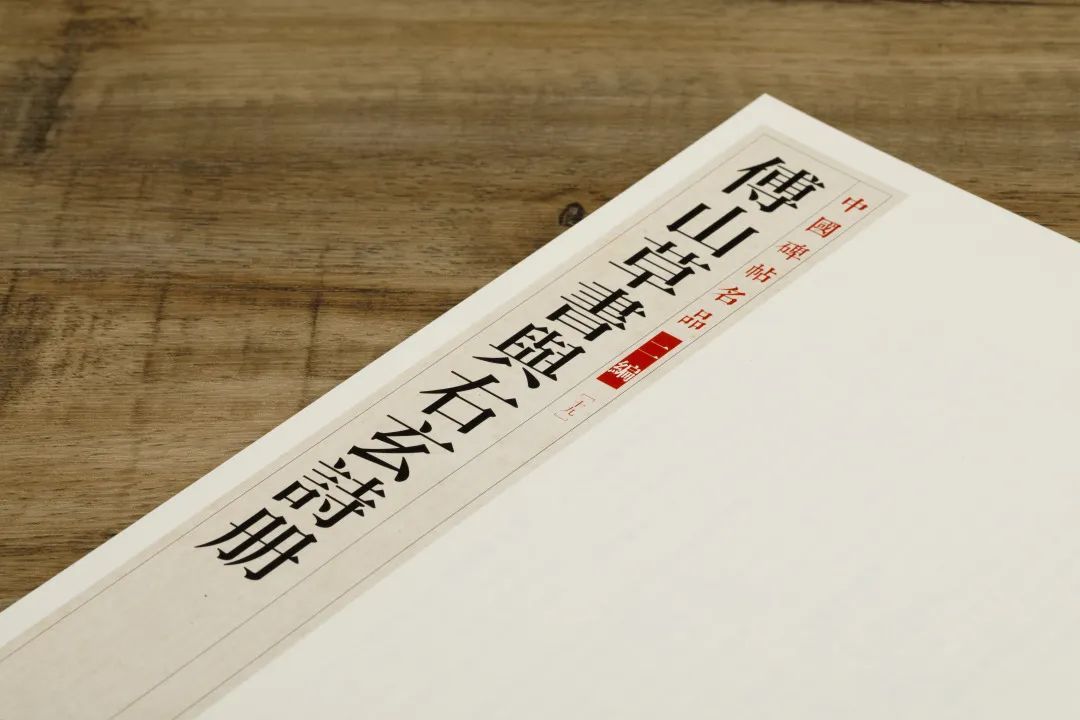 中國碑帖名品二編［十九］
傅山草書與右玄詩册